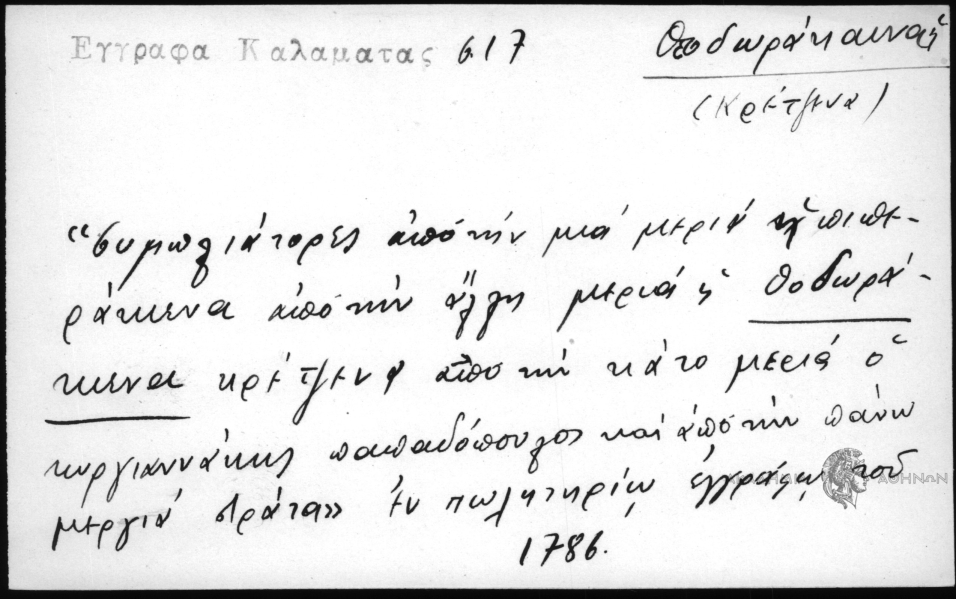 Εγγραφα Καλαματας 617
Θεοδωράκαινα ἡ
(Κρέτζενα)
"συμπλιάτορες ἀπό τήν μιά μεριά ἡ πιπε-
ράκενα ἀπό τήν ἄλλη μεριά ἡ Θοδωρά-
κενα κρέτζενα ἀπό τήν κάτο μεριά ὁ
κυργιαννάκης παπαδόπουλος καί ἀπό τήν πάνω
μεργιά στράτα" ἐν πωλητηρίῳ ἐγγράφῳ τοῦ
1786.
ΑΘΗΝΩΝ